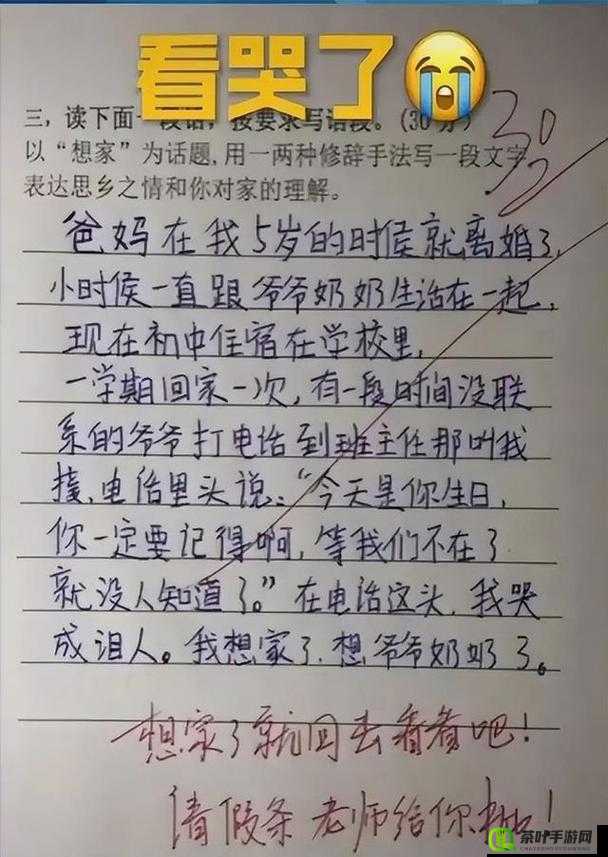 看哭了😭
三，读下面一段话，按要求写话段。(30分)
以“想家”为话题，用一两种修辞手法写一段文字
表达思乡之情和你对家的理解。
30
爸妈在我5岁的时侯就离婚了，
小时侯一直跟爷爷奶奶生活在一起，
现在初中住宿在学校里，
一学期回家一次，有一段时间没联
系的爷爷打电话到班主任那叫我
接，电话里头说：“今天是你生日，
你一定要记得啊，等我们不在了
就没人知道了。”在电话这头，我哭
成泪人。我想家了，想爷爷奶奶了。
想家了就回去看看吧！
请假条老师给你批！
茶叶手游网